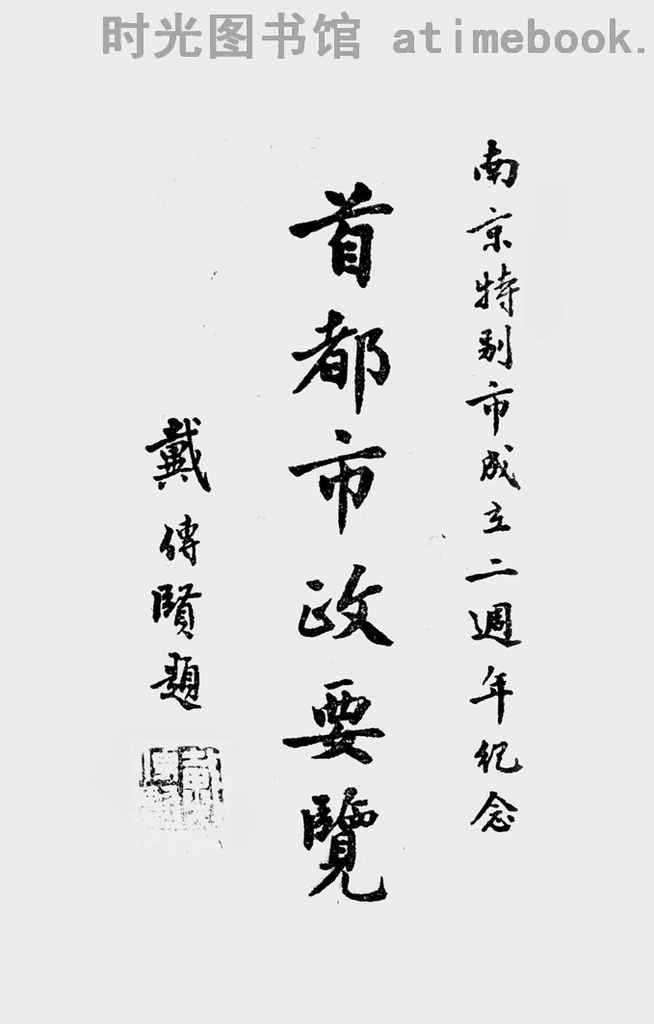 时光图书馆 atimebook.
南京特别市成立二週年纪念
首都市政要覽
戴傳賢題